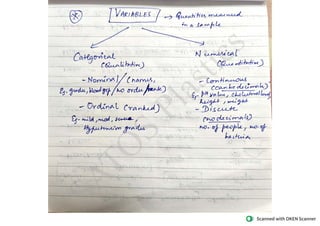 VARIABLES → Quantities measured
in a sample
Categorical
(Qualitative)
- Nominal / (names,
Eg. gender, blood grp / no order/rank)
- Ordinal (ranked)
Eg- mild, mod, severe,
Hypertension grades
Numerical
(Quantitative)
- Continuous
(can be decimals)
Eg. BP value, cholesterol level,
height, weight
- Discrete
(no decimals)
no. of people, no. of
bacteria
Scanned with OKEN Scanner